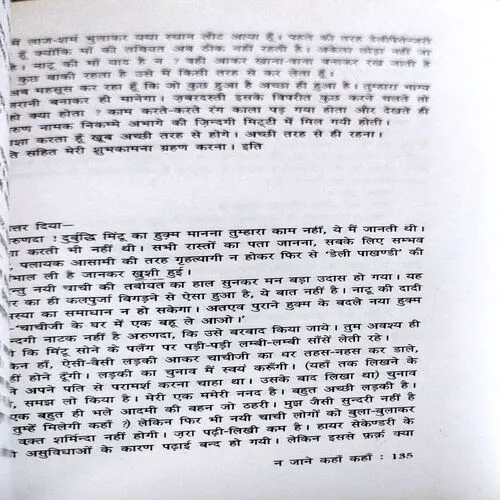 में लाज-शर्म भुलाकर यथा स्थान लौट आया हूँ। पहले की तरह डेलीपैसेन्जरी
हूँ क्योंकि माँ की तबियत अब ठीक नहीं रहती है। अकेला छोड़ा नहीं जा
है। नाटू की माँ याद है न ? वही आकर खाना-वाना बनाकर रख जाती है
कुछ बाकी रहता है उसे मैं किसी तरह से कर लेता हूँ।
अब महसूस कर रहा हूँ कि जो कुछ हुआ है अच्छा ही हुआ है। तुम्हारा भाग्य
रानी बनाकर ही मानेगा। ज़बरदस्ती इसके विपरीत कुछ करने चलते तो
हो क्या होता ? काम करते-करते रंग काला पड़ गया होता और देखते ही
रुण नामक निकम्मे अभागे की ज़िन्दगी मिट्टी में मिल गयी होती।
शा करता हूँ खूब अच्छी तरह से होगे। अच्छी तरह से ही रहना।
ते सहित मेरी शुभकामना ग्रहण करना। इति
त्तर दिया—
रुणदा ! दुर्बुद्धि मिंटू का हुक्म मानना तुम्हारा काम नहीं, ये मैं जानती थी।
ा करती भी नहीं थी। सभी रास्तों का पता जानना, सबके लिए सम्भव
पलायक आसामी की तरह गृहत्यागी न होकर फिर से 'डेली पाखण्डी' की
भाल ली है जानकर खुशी हुई।
न्तु नयी चाची की तबीयत का हाल सुनकर मन बड़ा उदास हो गया। यह
र का ही कलपुर्जा बिगड़ने से ऐसा हुआ है, ये बात नहीं है। नाटू की दादी
स्या का समाधान न हो सकेगा। अतएव पुराने हुक्म के बदले नया हुक्म
'चाचीजी के घर में एक बहू ले आओ।'
न्दगी नाटक नहीं है अरुणदा, कि उसे बरबाद किया जाये। तुम अवश्य ही
गे कि मिंटू सोने के पलँग पर पड़ी-पड़ी लम्बी-लम्बी साँसें लेती रहे।
किन हाँ, ऐसी-वैसी लड़की आकर चाचीजी का घर तहस-नहस कर डाले,
हीं होने दूँगी। लड़की का चुनाव मैं स्वयं करूँगी। (यहाँ तक लिखने के
ने अपने पति से परामर्श करना चाहा था। उसके बाद लिखा था) चुनाव
, समझ लो किया है। मेरी एक ममेरी ननद है। बहुत अच्छी लड़की है।
एक बहुत ही भले आदमी की बहन जो ठहरी। मुझ जैसी सुन्दरी नहीं है
तुम्हें मिलेगी कहाँ ?) लेकिन फिर भी नयी चाची लोगों को बुला-बुलाकर
वक़्त शर्मिन्दा नहीं होगी। ज़रा पढ़ी-लिखी कम है। हायर सेकेण्डरी के
ी असुविधाओं के कारण पढ़ाई बन्द हो गयी। लेकिन इससे फ़र्क़ क्या
न जाने कहाँ कहाँ : 135